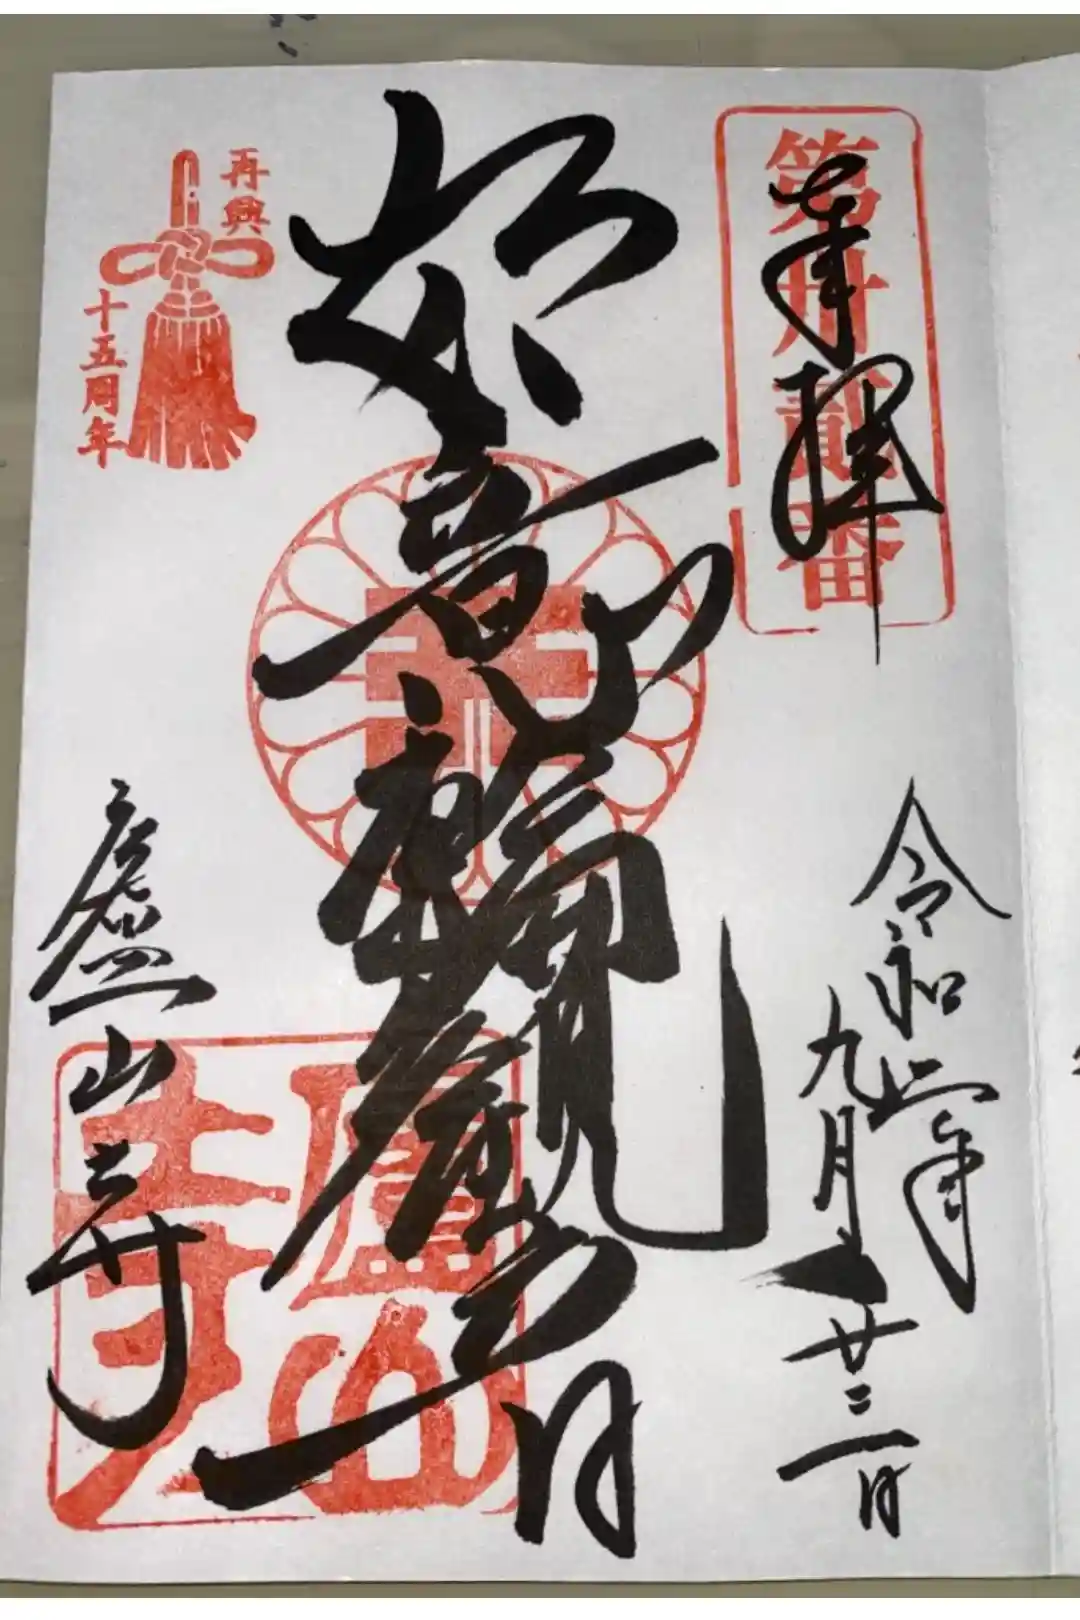 第卅貳番
奉拝
令和二年
九月廿三日
如意輪觀音
再興
十五周年
廬山寺
廬山寺